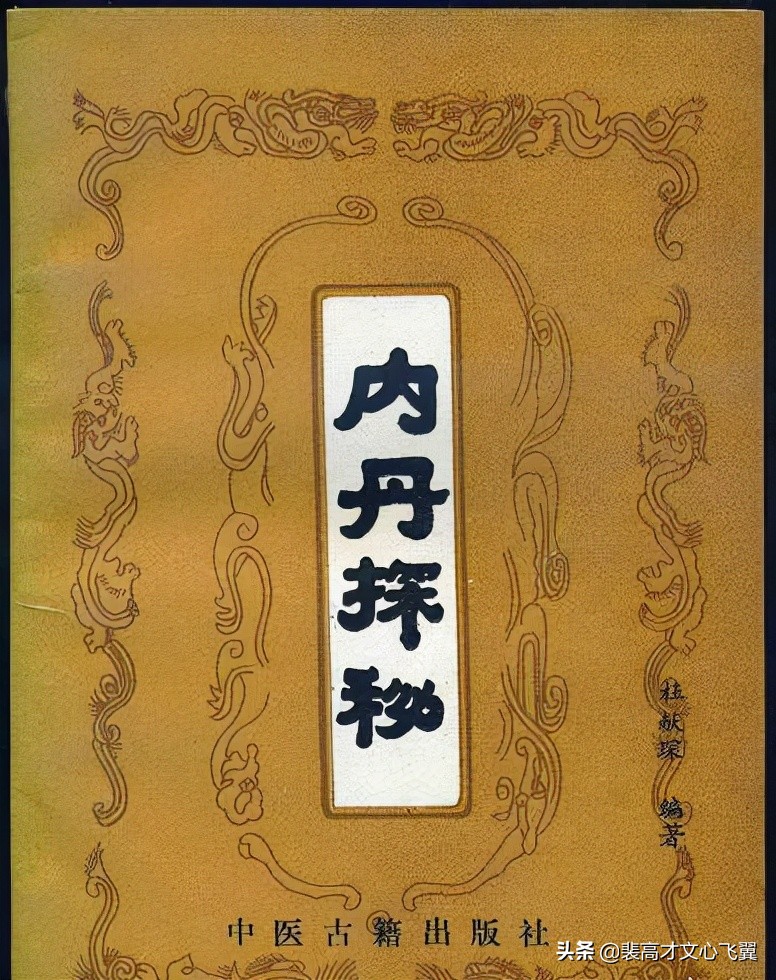 内丹探秘
杜献琛 编著
中医古籍出版社
头条 @裴高才文心飞翼